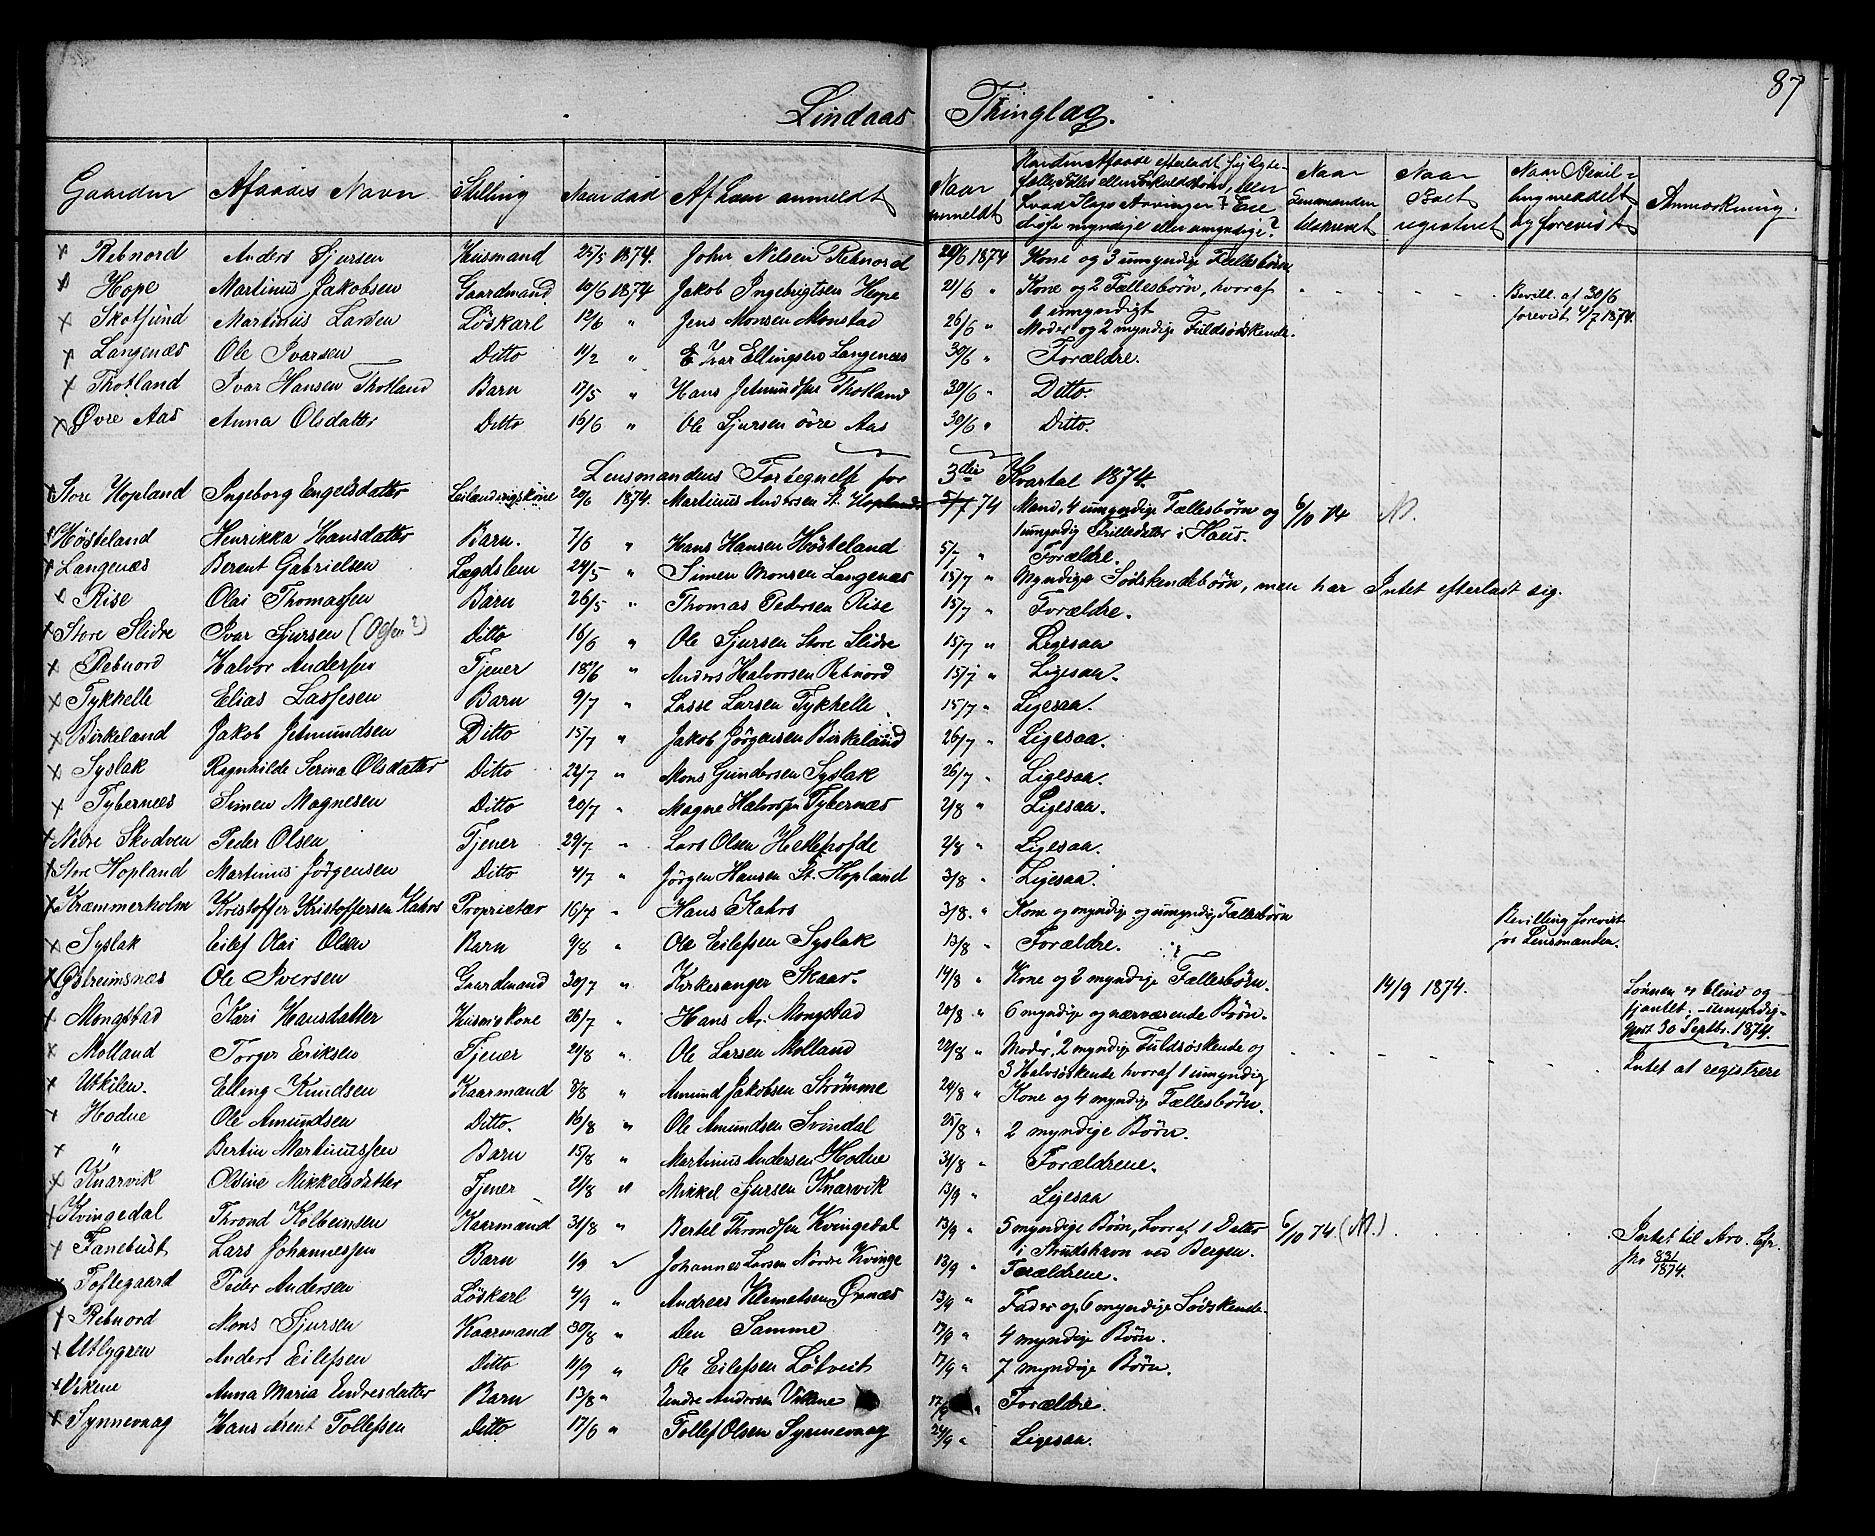 87
Lindaas Thinglag.
Gaarden | Afdødes Navn | Stilling | Naar død | Af hvem anmeldt | Naar anmeldt | Hvad Slags Arvinger? Ere disse myndige eller umyndige? | Naar | Naar Boet registreret | Naar Bevilling meddelt og forevist | Anmærkning.
x Rebnord | Anders Sjursen | Husmand | 25/5 1874. | John Nilsen Rebnord | 20/6 1874 | Kone og 3 umyndige Fællesbørn
x Hope | Martinus Jakobsen | Gaardmand | 10/6 1874 | Jakob Ingebrigtsen Hope | 21/6 " | Kone og 2 Fællesbørn, hvoraf 1 umyndigt | Bevill. af 30/6 forevist 4/7 1874.
x Skotsund | Martinus Larsen | Löskarl | 12/6 " | Jens Monsen Monstad | 26/6 " | Moder og 2 myndige Fuldsødskende.
x Langenæs | Ole Ivarsen | Ditto | 11/2 " | E Ivar Ellingsen Langenæs | 30/6 " | Forældre.
x Thotland | Ivar Hansen Thotland | Barn | 17/5 " | Hans Jetmundsen Thotland | 30/6 " | Ditto.
x Øvre Aas | Anna Olsdatter | Ditto | 16/6 " | Ole Sjursen øvre Aas | 30/6 " | Ditto.
Lensmandens Fortegnelse for 3die Kvartal 1874.
x Store Hopland | Ingeborg Engelsdatter | Leilændingskone | 20/6 1874. | Martinus Andersen St. Hopland | 5/7 74 | Mand, 4 umyndige Fællesbørn og 1 umyndig Stifdatter i Haus. | 6/10 74 | N.
x Høsteland | Henrikka Hansdatter | Barn. | 7/6 " | Hans Hansen Høsteland | 5/7 " | Forældre.
x Langenæs | Berent Gabrielsen | Lægdslem | 24/5 " | Simen Monsen Langenæs | 15/7 " | Myndige Sødskendebørn, men har Intet efterladt sig.
x Rise | Olai Thomassen | Barn | 26/5 " | Thomas Pedersen Rise | 15/7 " | Forældre.
x Store Slidre | Ivar Sjursen (Olsen?) | Ditto | 16/6 " | Ole Sjursen Store Slidre | 15/7 " | Ligesaa
x Rebnord | Halvor Andersen | Tjener | 18/6 " | Anders Halvorsen Rebnord | 15/7 " | Ligesaa.
x Tykhelle | Elias Lassesen | Barn | 9/7 " | Lasse Larsen Tykhelle | 15/7 " | Ligesaa.
x Birkeland | Jakob Jetmundsen | Ditto | 15/7 " | Jakob Jørgensen Birkeland | 26/7 " | Ligesaa.
x Syslak | Ragnhilde Serina Olsdatter | Ditto | 22/7 " | Mons Gundersen Syslak | 26/7 " | Ligesaa.
x Tybernæs | Simen Magnesen | Ditto | 20/7 " | Magne Halvorsen Tybernæs | 2/8 " | Ligesaa.
x Nedre Skodven | Peder Olsen | Tjener | 29/7 " | Lars Olsen | 2/8 " | Ligesaa.
x Store Hopland | Martinus Jørgensen | Ditto | 4/7 " | Jörgen Hansen St. Hopland | 3/8 " | Ligesaa.
x Kræmmerholm | Kristoffer Kristoffersen Kahrs | Proprietær | 16/7 " | Hans Kahrs | 3/8. " | Kone og myndige og umyndig Fællesbørn | Bevilling forevist for Lensmanden.
x Syslak | Eilef Olai Olsen | Barn | 9/8 " | Ole Eilefsen Syslak | 13/8 " | Forældre.
x Ostreimsnæs | Ole Iversen | Gaardmand | 30/7 " | Kirkesanger Skaar | 14/8 " | Kone og 2 myndige Fællesbørn. | 14/9 1874. | Sønnen er blind og fjantet; umyndiggjort 30 Septbr. 1874.
x Mongstad | Kari Hansdatter | Husm's kone | 26/7 " | Hans A. Mongstad | 20/8 " | 6 myndige og nærværende Børn.
x Molland | Torger Eeriksen | Tjener | 21/8 " | Ole Larsen Molland | 22/8 " | Moder, 2 myndige Fuldsøskende og 3 Halvsøskende hvoraf 1 umyndig | Intet at registrere
x Utkilen. | Elling Knudsen | Kaarmand | 8/8 " | Amund Jakobsen Strömme | 24/8 " | Kone og 4 myndige Fællesbørn.
x Hodne | Ole Amundsen | Ditto. | 16/8 " | Ole Amundsen Svindal | 25/8 " | 2 myndige Børn.
x " | Bertin Martinussen | Barn | 15/8 " | Martinus Andersen Hodne | 31/8 " | Forældrene.
x Knarvik | Olsine Mikkelsdatter | Tjener | 21/8 " | Mikkel Sjursen Knarvik | 13/9 " | Ligesaa
x Kvingedal | Thrond Kolbeinsen | Kaarmand | 31/8 " | Bertel Throndsen Kvingedal | 13/9 " | 5 myndige Børn, hvoraf 1 Datter i Strudshavn ved Bergen. | 6/10 74 (N.) | Intet til Arv. Cfr. Jno 831/1874.
x Fanebust | Lars Johannessen | Barn | 1/9 " | Johannes Larsen Nordre Kvinge | 13/9 " | Forældrene.
x Toftegaard | Peder Andersen | Löskarl | 4/9 " | Andreas Klemetsen Ørnæs | 13/9 " | Fader og 6 myndige Sødskende.
x Rebnord | Mons Sjursen | Kaarmand | 30/8 " | Den Samme | 13/9 " | 4 myndige Børn.
x Utlygren | Anders Eilefsen | Ditto | 11/9 " | Ole Eilefsen Løtveit | 17/9 " | 7 myndige Børn.
x Vikene | Anna Maria Endresdatter | Barn | 13/8 " | Endre Andersen Vikane | 17/9 " | Forældre.
x Synnevaag | Hans Arent Tollefsen | Ditto | 17/6 " | Tollef Olsen Synnevaag | 24/9 " | Ligesaa.